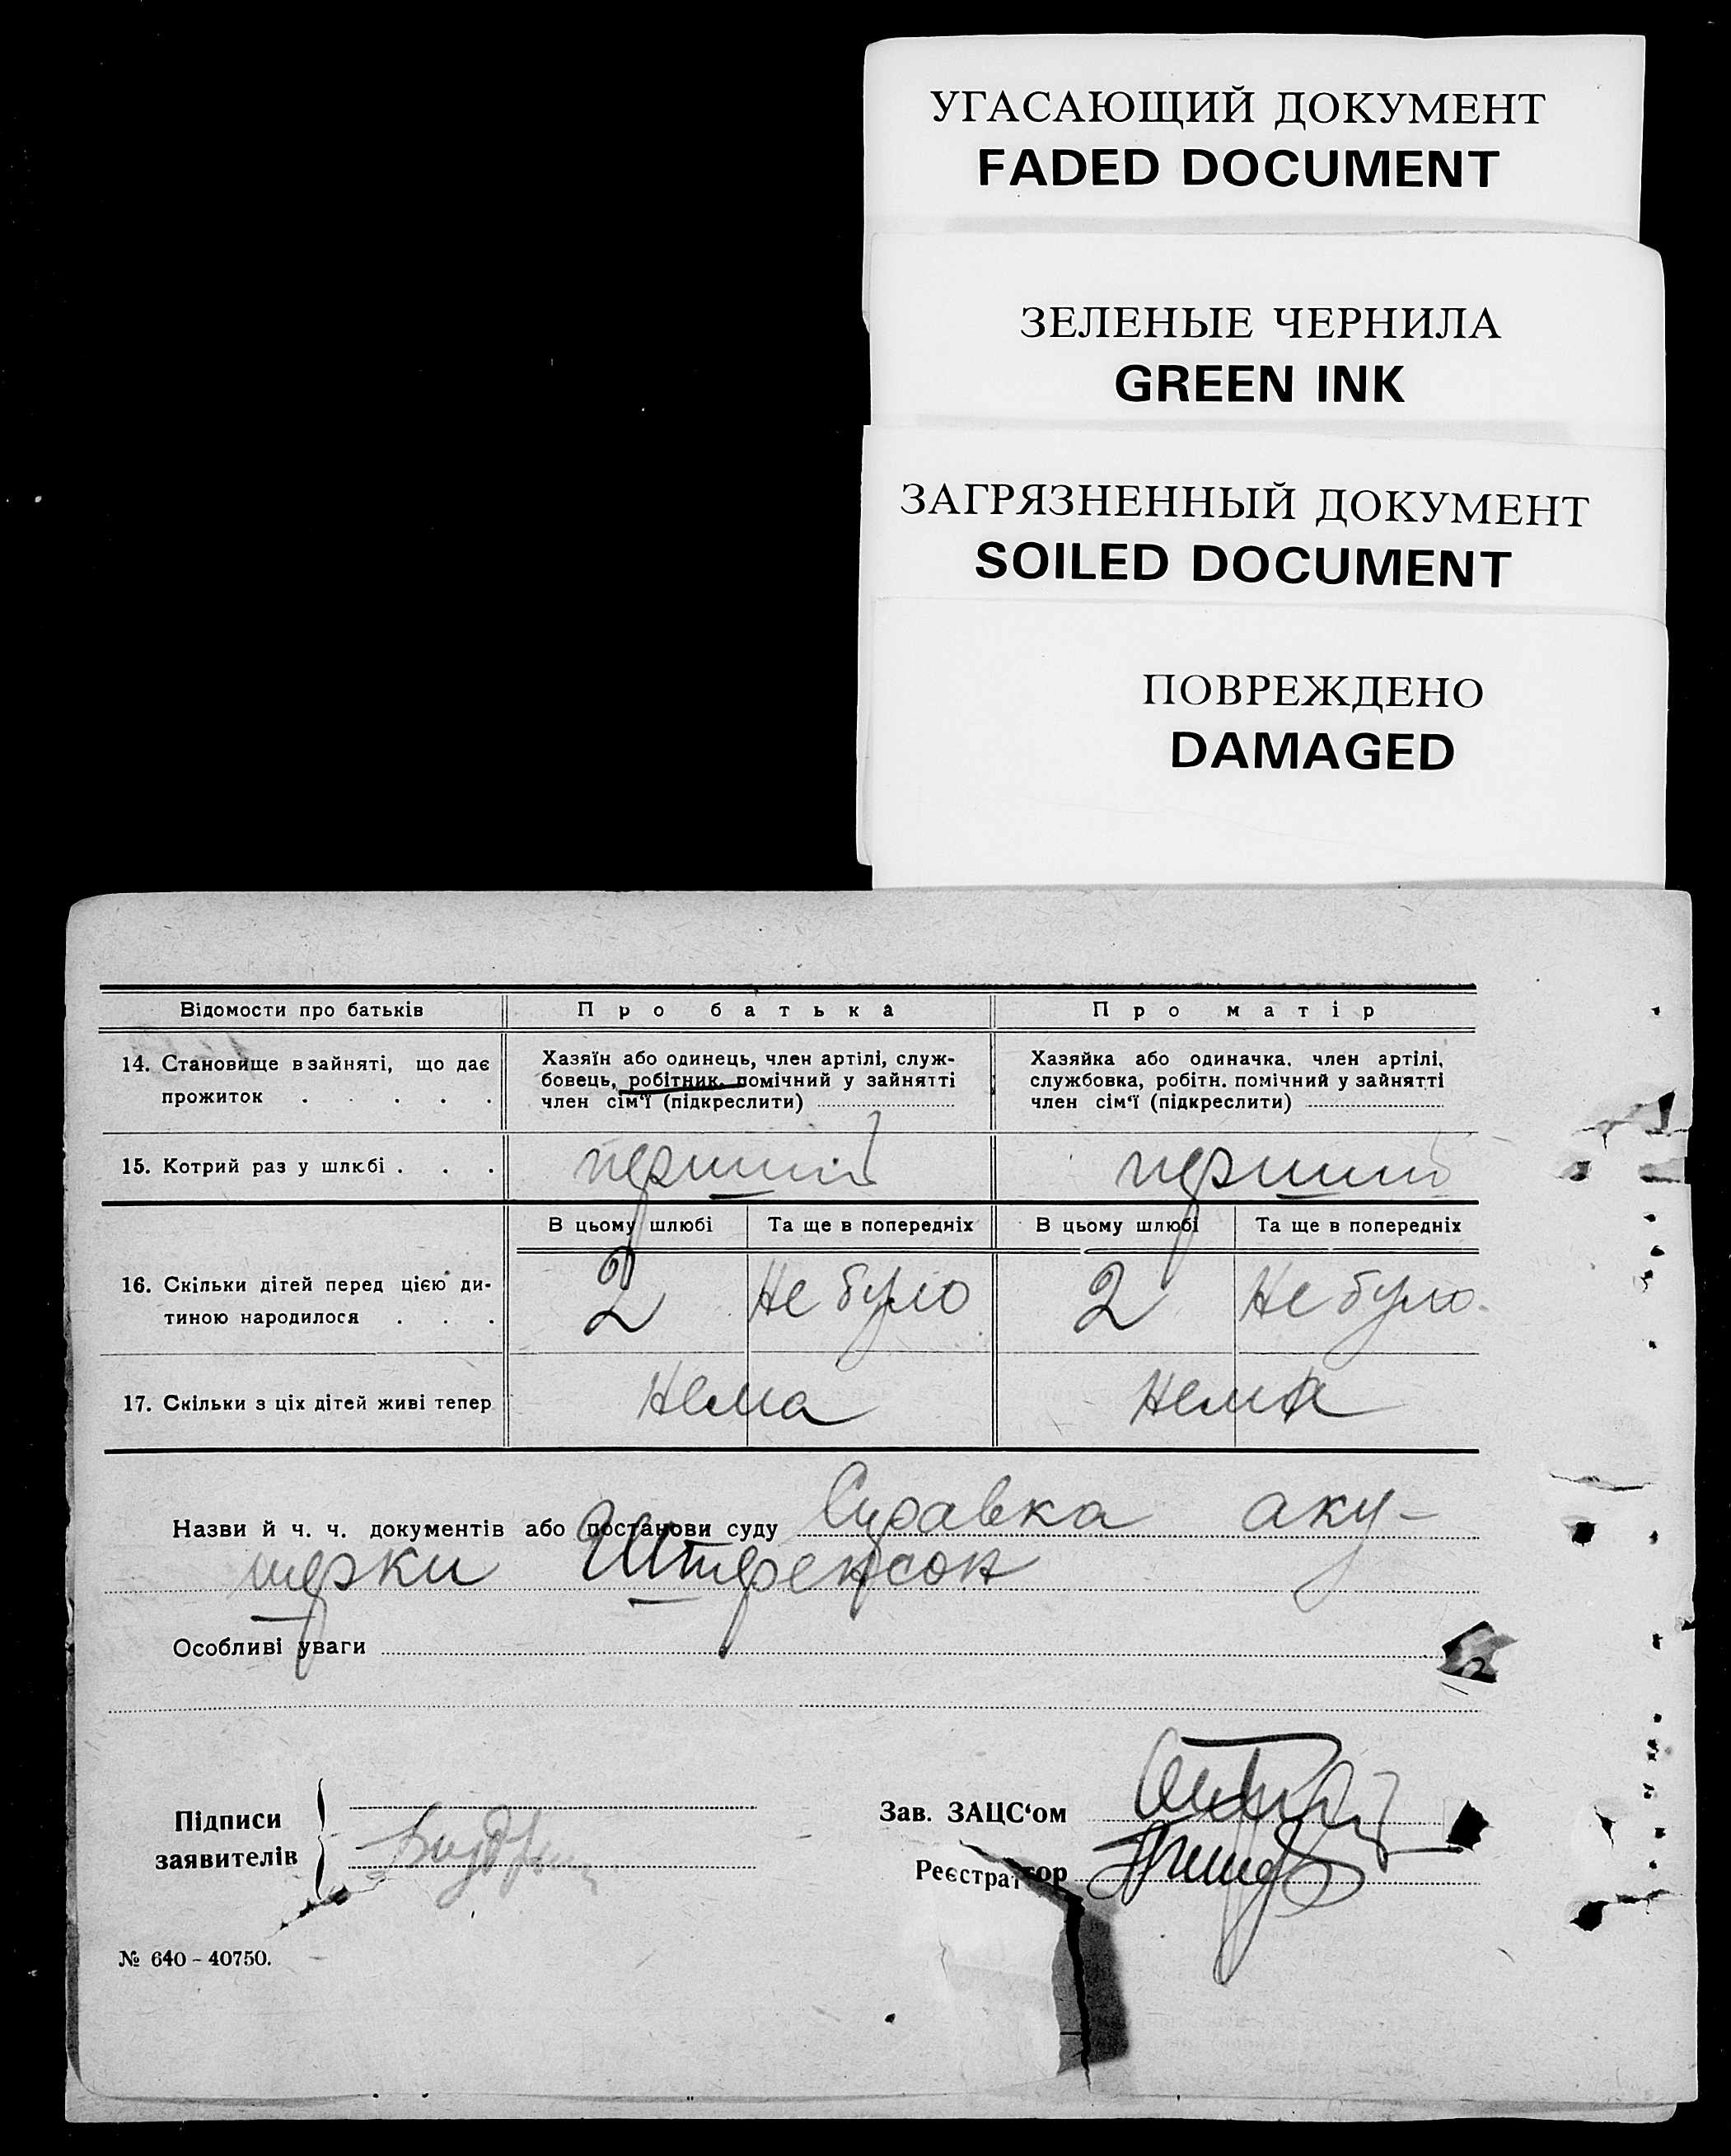 УГАСАЮЩИЙ ДОКУМЕНТ
FADED DOCUMENT
ЗЕЛЕНЫЕ ЧЕРНИЛА
GREEN INK
ЗАГРЯЗНЕННЫЙ ДОКУМЕНТ
SOILED DOCUMENT
ПОВРЕЖДЕНО
DAMAGED
Відомости про батьків Про батька Про матір
14. Становище в зайняті, що дає прожиток . . . . .
Хазяїн або одинець, член артілі, служ-
бовець, робітник, помічний у зайнятті
член сім‘ї (підкреслити)
Хазяйка або одиначка, член артілі,
службовка, робітн. помічний у зайнятті
член сім‘ї (підкреслити)
15. Котрий раз у шлюбі . . . перший перший
В цьому шлюбі Та ще в попередніх В цьому шлюбі Та ще в попередніх
16. Скільки дітей перед цією ди-
тиною народилося . . . 2 Не було 2 Не було.
17. Скільки з ціх дітей живі тепер Нема Нема
Назви й ч. ч. документів або постанови суду Справка аку-
шерки
Особливі уваги
Підписи
заявителів
Зав. ЗАЦС‘ом
Реєстратор
№ 640 - 40750.